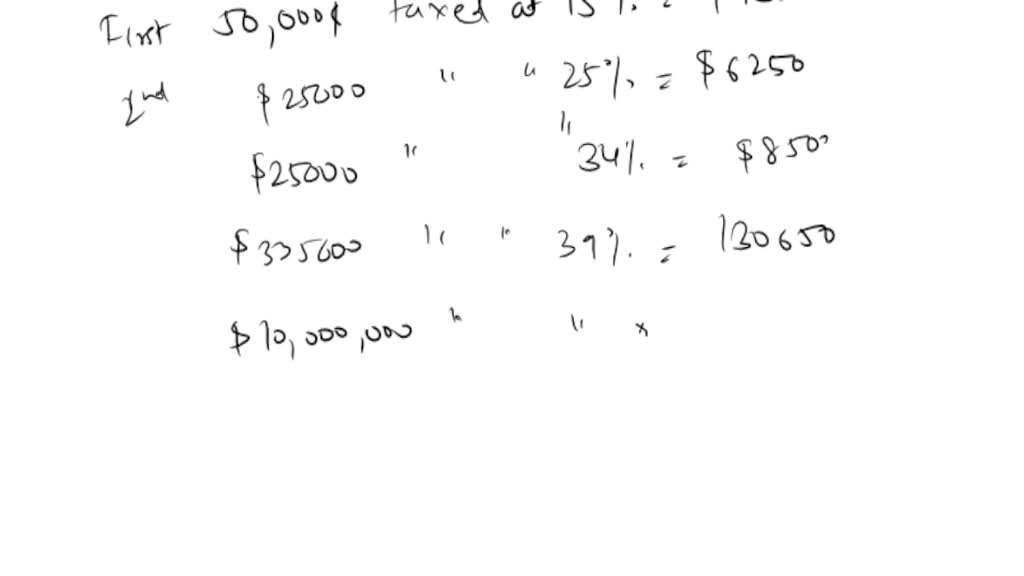 First 50,000$ taxed at 15% =
2nd $25000 " " 25% = $6250
$25000 " " 34% = $8500
$335000 " " 39% = 130650
$10,000,000 " " x